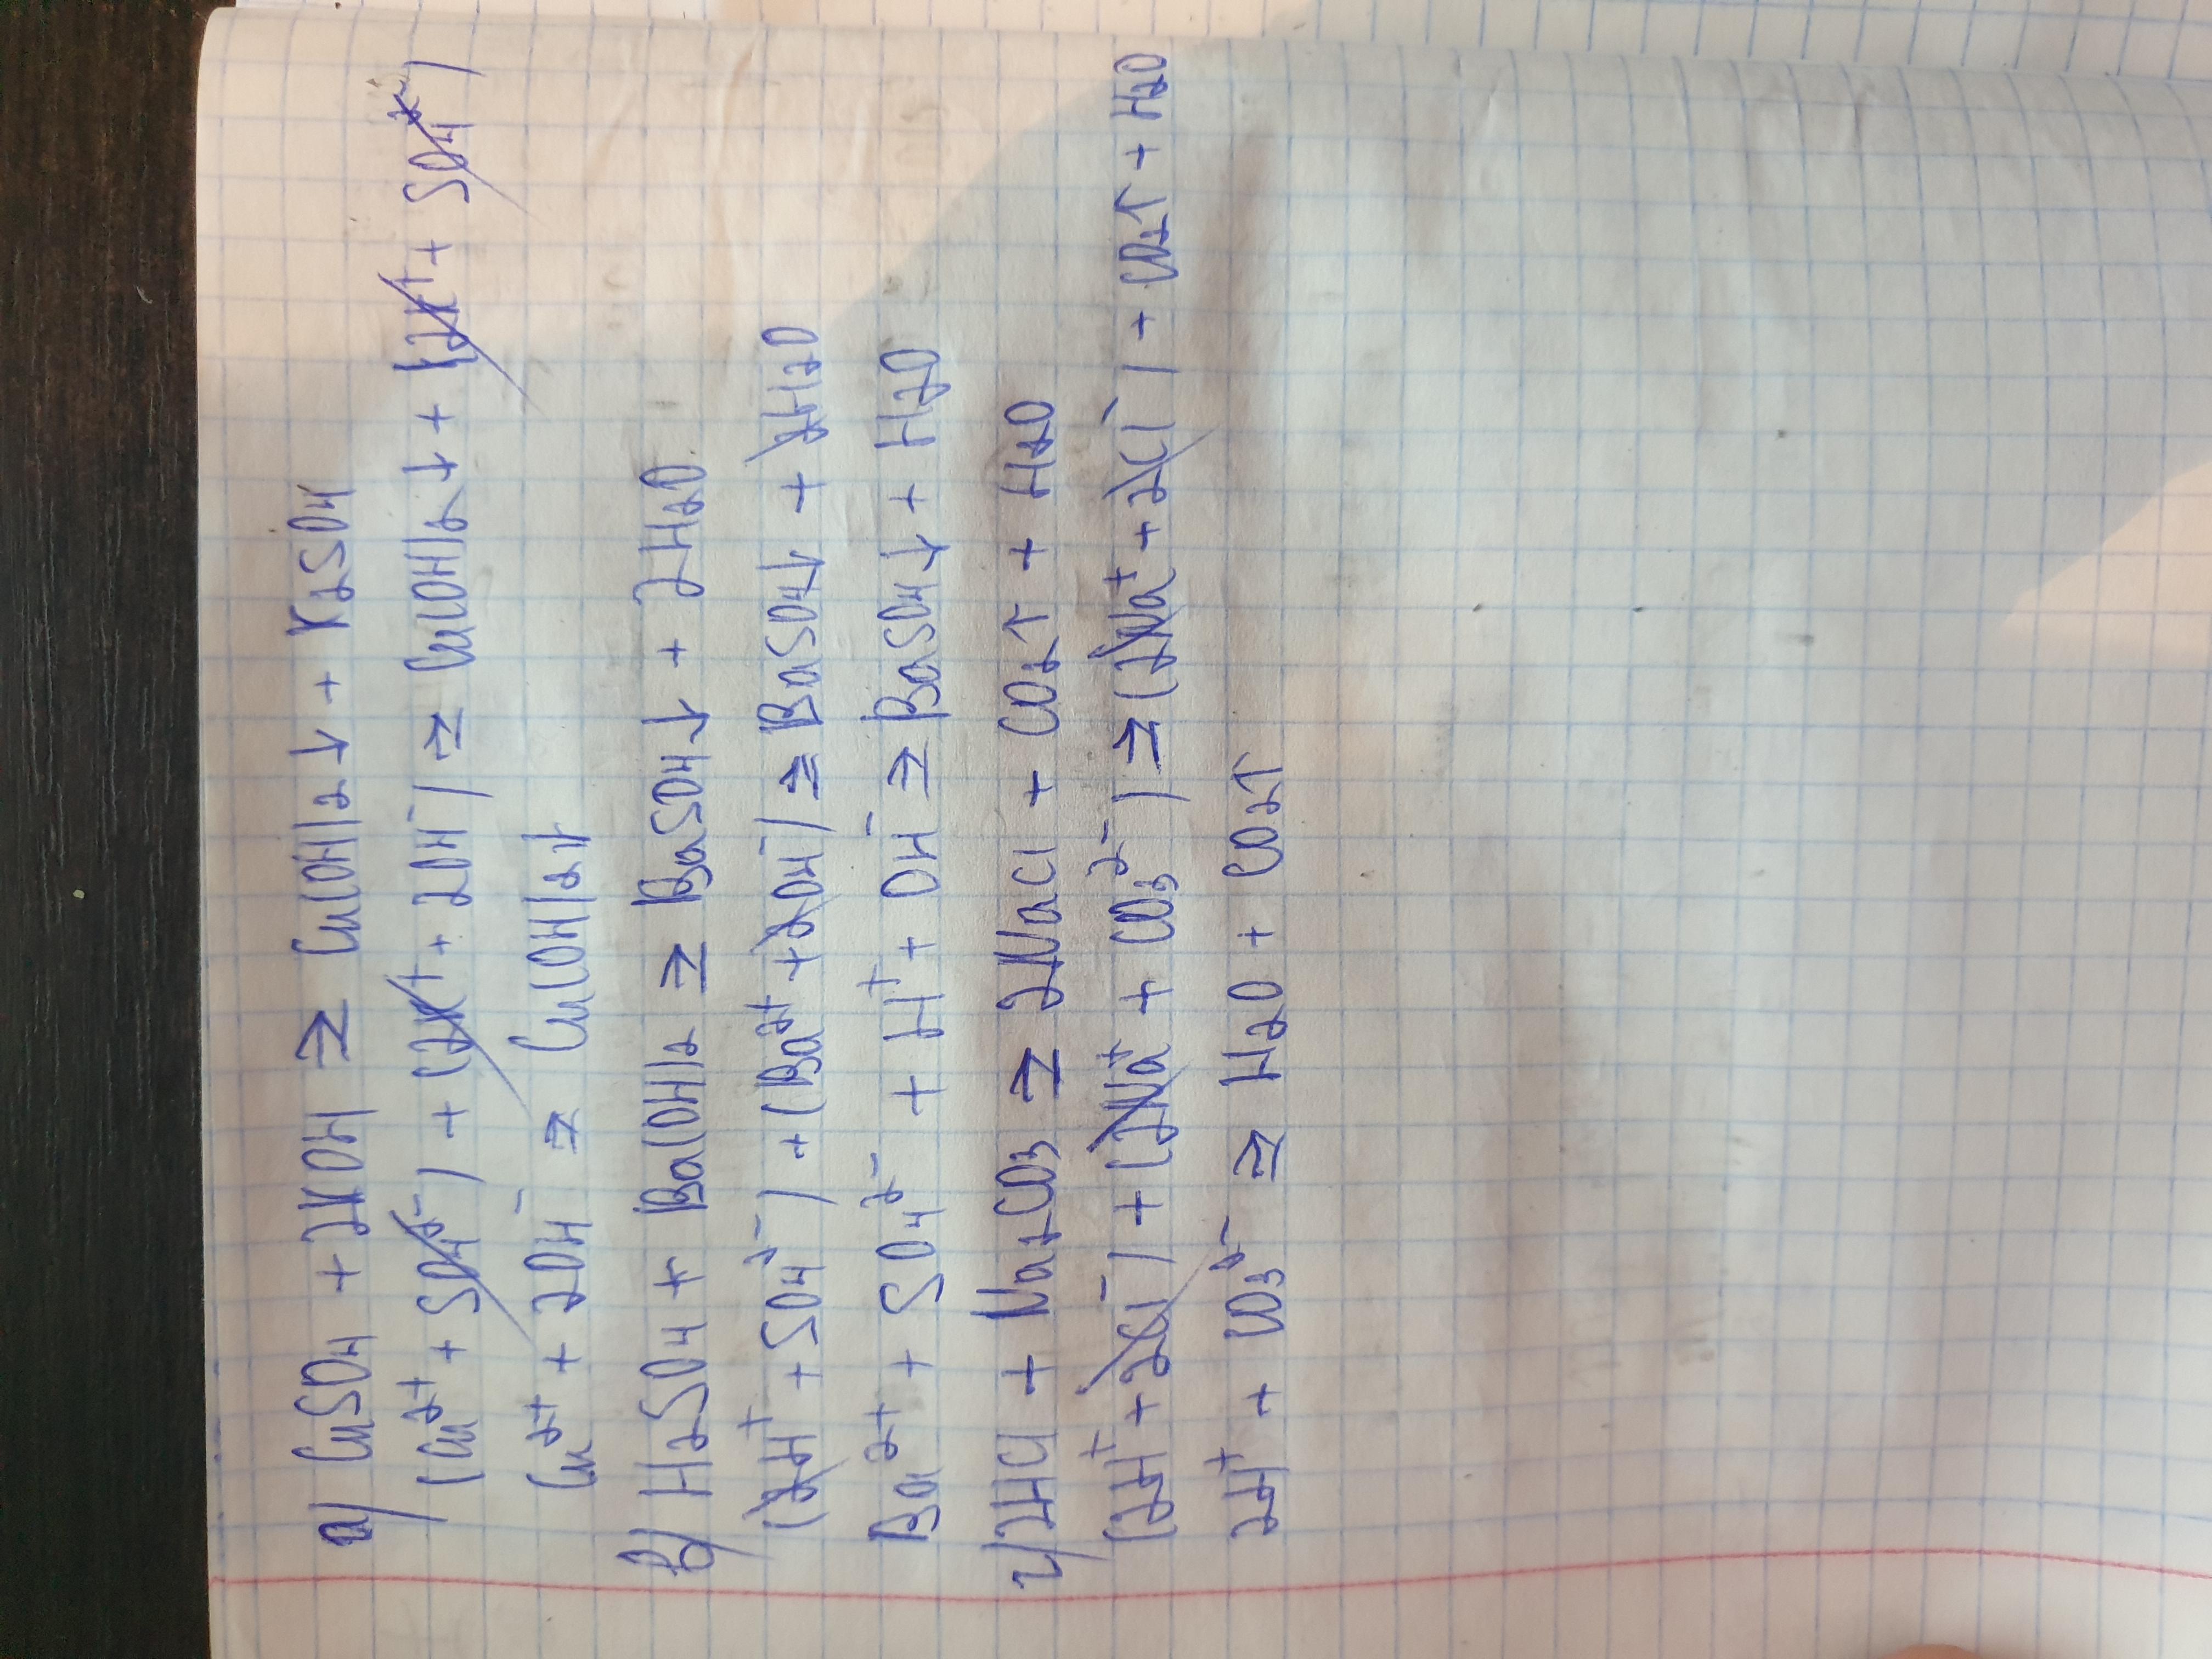 а) CuSO4 + 2KOH ⇒ Cu(OH)2↓ + K2SO4
(Cu2+ + SO4 2-) + (2K+ + 2OH-) ⇒ Cu(OH)2↓ + (2K+ + SO4 2-)
Cu2+ + 2OH- ⇒ Cu(OH)2↓
в) H2SO4 + Ba(OH)2 ⇒ BaSO4↓ + 2H2O
(2H+ + SO4 2-) + (Ba2+ + 2OH-) ⇒ BaSO4↓ + 2H2O
Ba2+ + SO4 2- + H+ + OH- ⇒ BaSO4↓ + H2O
г) 2HCl + Na2CO3 ⇒ 2NaCl + CO2↑ + H2O
(2H+ + 2Cl-) + (2Na+ + CO3 2-) ⇒ (2Na+ + 2Cl-) + CO2↑ + H2O
2H+ + CO3 2- ⇒ H2O + CO2↑